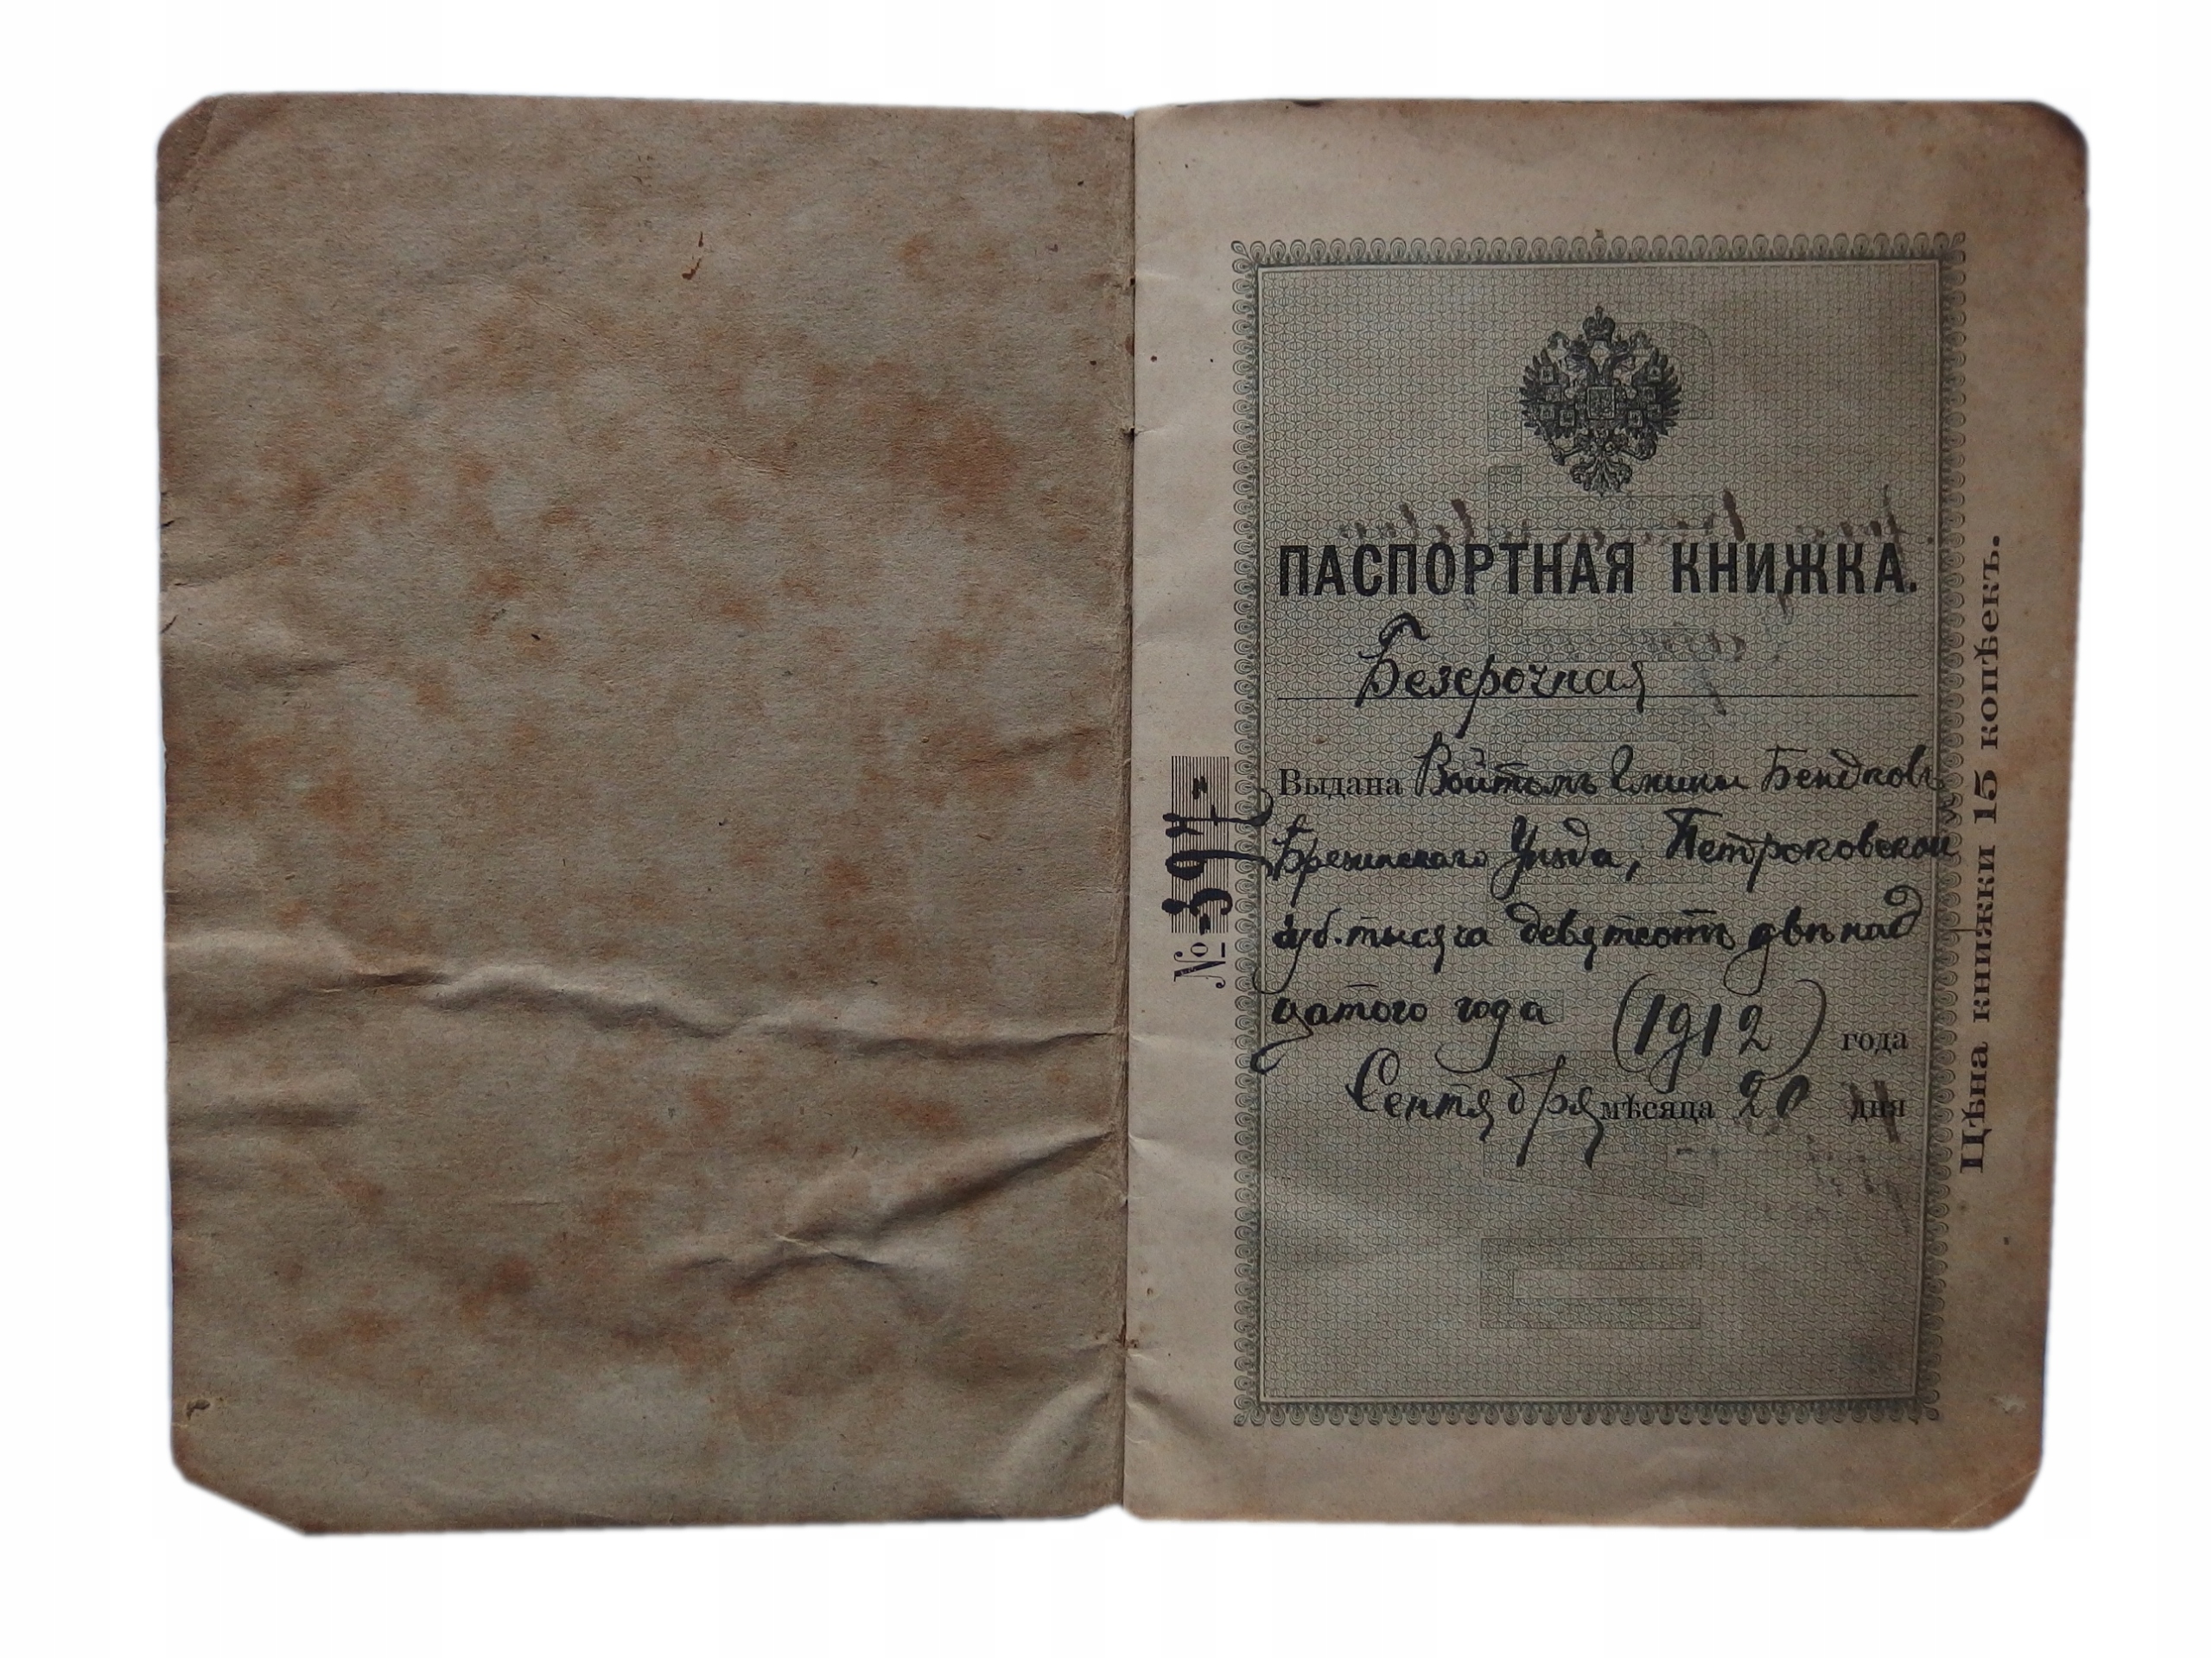 ПАСПОРТНАЯ КНИЖКА.
Безсрочная
Выдана Войтомъ Гмины Бендковъ
Брезинскаго Уѣзда, Петроковской
губ. тысяча девятсотъ двѣнад
цатого года (1912) года
Сентября мѣсяца 20 дня
№ -397-
Цѣна книжки 15 копѣекъ.